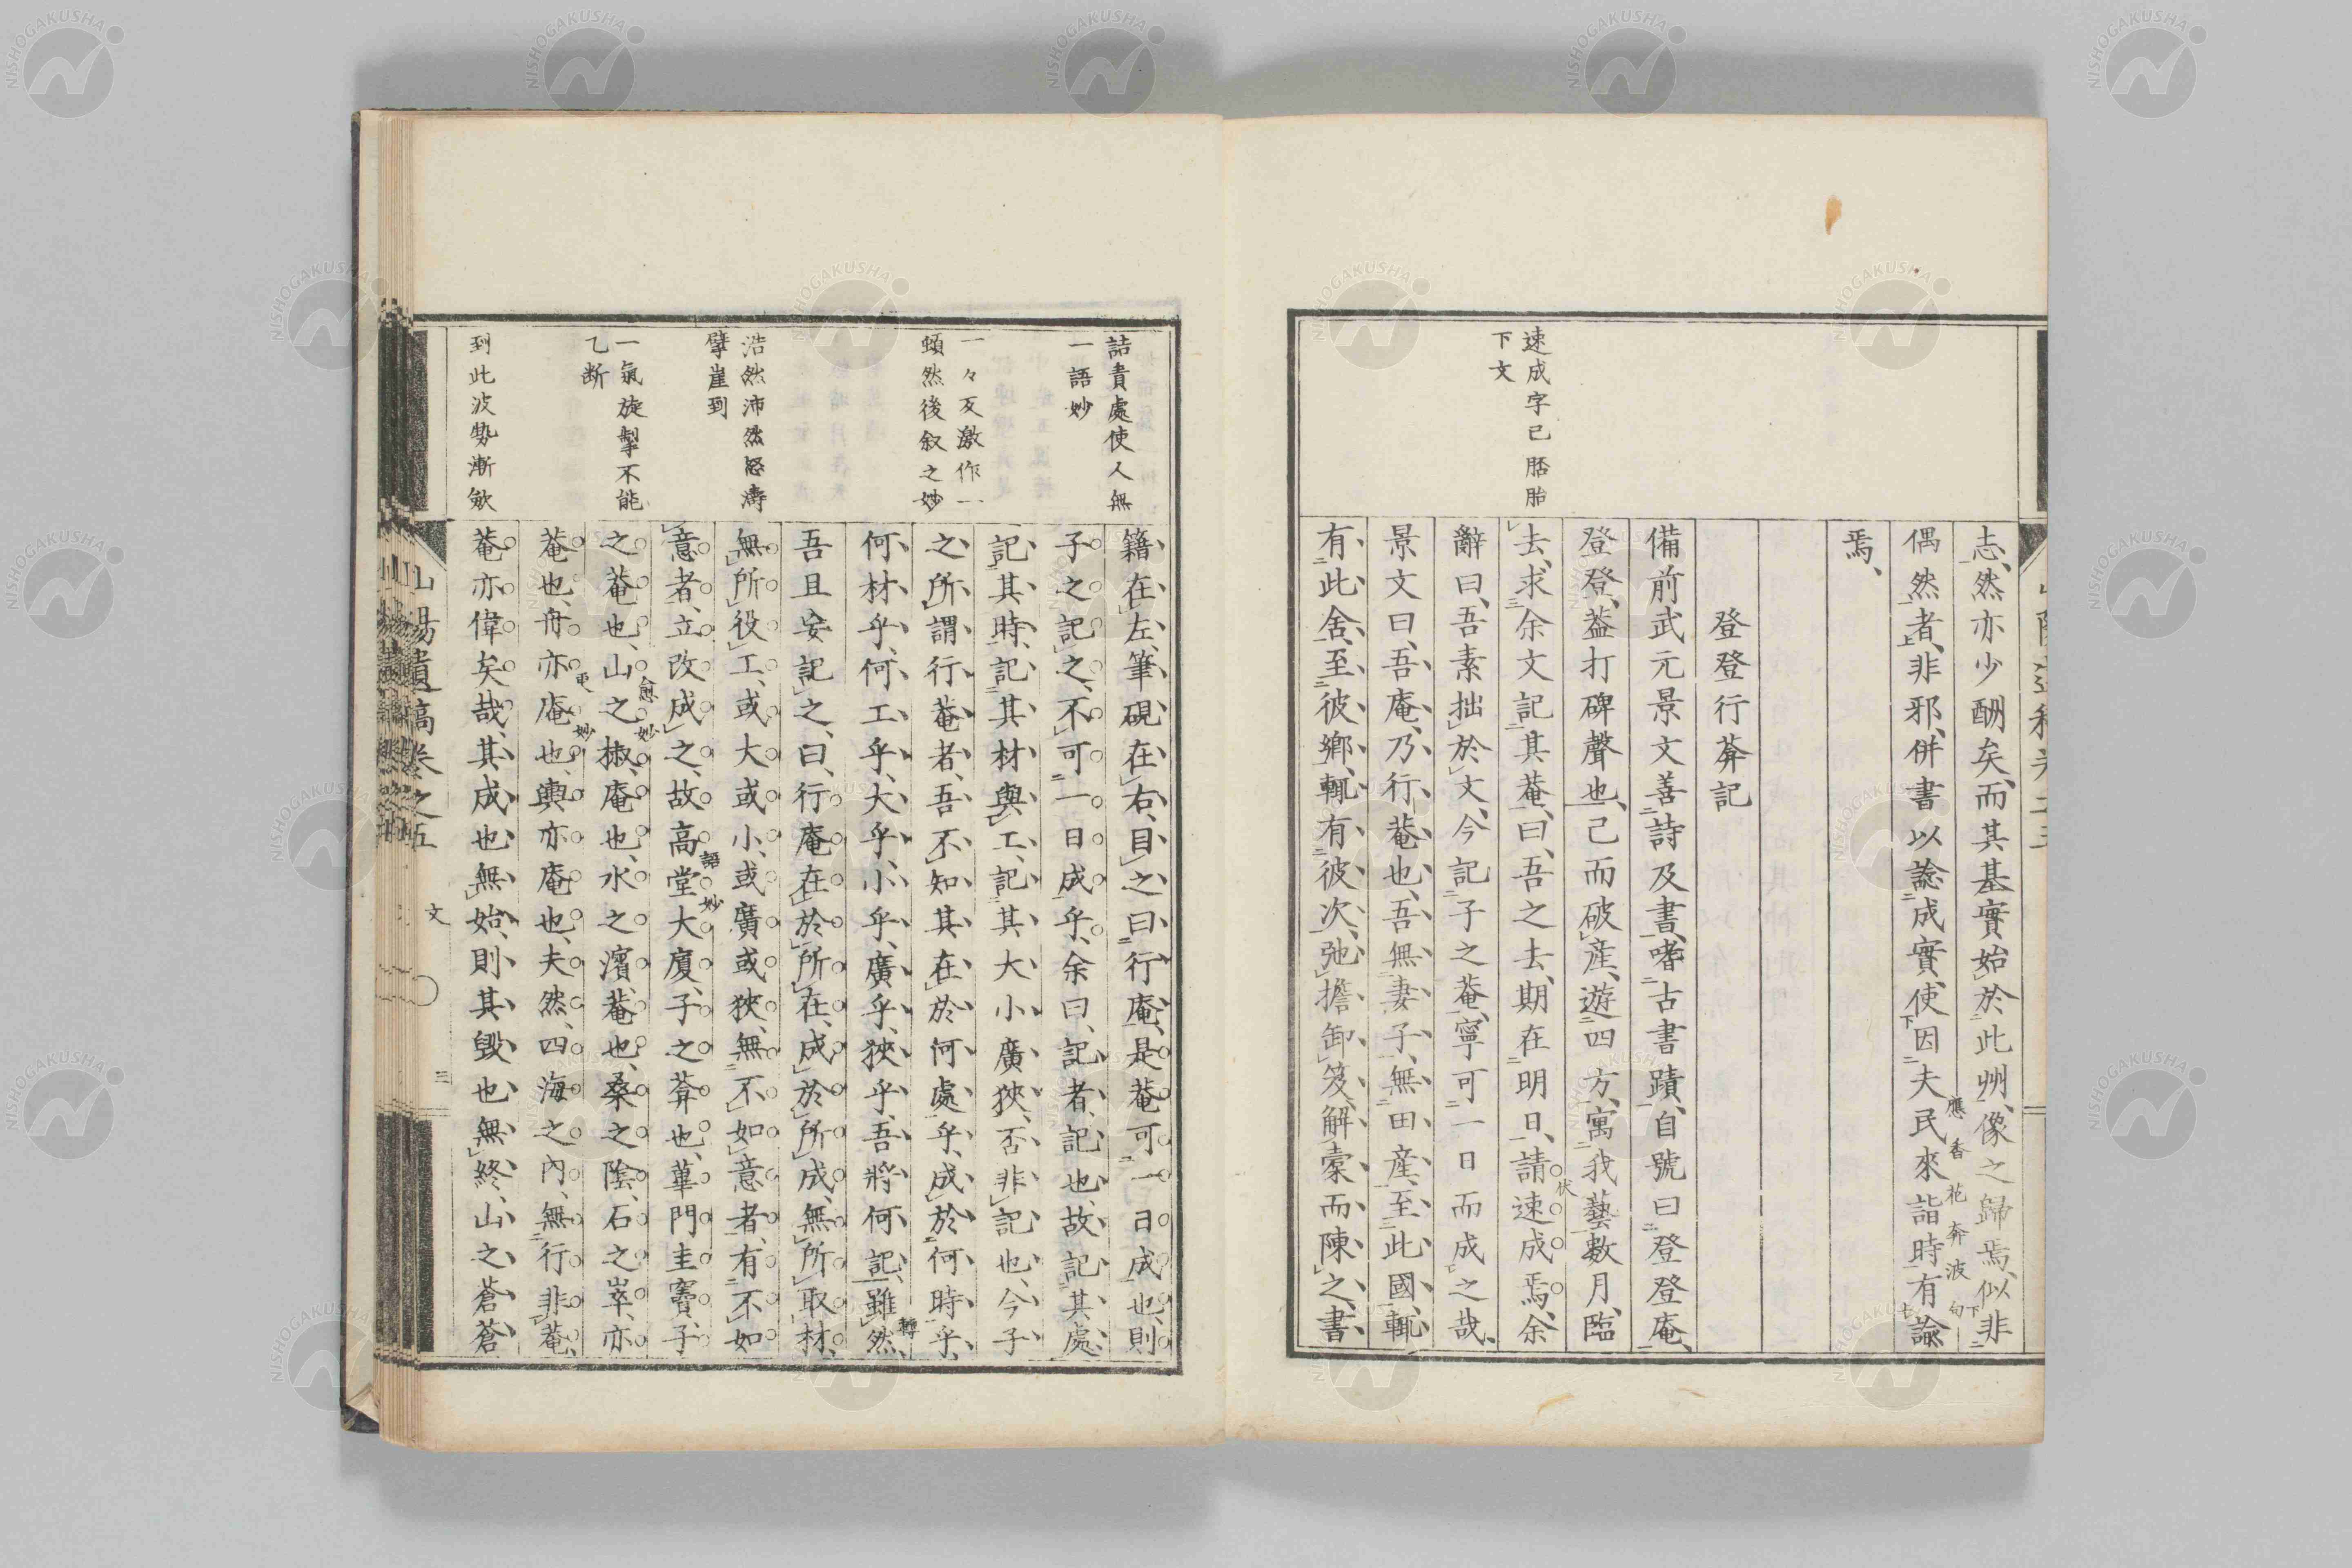 志、然亦少酬矣、而其基實始於此州、像之歸焉、似非
偶然者、非邪、併書以諗成實、使因夫民來詣時有諭
焉、
登登行莾記
備前武元景文善詩及書、嗜古書蹟、自號曰登登庵、
登登、蓋打碑聲也、己而破產、遊四方、寓我藝數月、臨
去、求余文記其菴、曰、吾之去、期在明日、請速成焉、余
辭曰、吾素拙於文、今記子之菴、寧可一日而成之哉、
景文曰、吾庵、乃行菴也、吾無妻子、無田產、至此國、輒
有此舍、至彼鄉、輒有彼次、弛擔卸笈、解橐而陳之、書
速成字已胚胎
下文
籍在左、筆硯在右、目之曰行庵、是菴可一日成也、則
子之記之、不可一日成乎、余曰、記者、記也、故記其處、
記其時、記其材與工、記其大小廣狹、否非記也、今子
之所謂行菴者、吾不知其在於何處乎、成於何時乎、
何材乎、何工乎、大乎、小乎、廣乎、狹乎、吾將何記、雖然、
吾且安記之、曰、行庵在於所在、成於所成、無所取材、
無所役工、或大或小、或廣或狹、無不如意者、有不如
意者、立改成之、故高堂大廈、子之莾也、蓽門圭竇、子
之菴也、山之椒、庵也、水之濱、菴也、桑之陰、石之崒、亦
菴也、舟亦庵也、輿亦庵也、夫然、四海之內、無行非菴、
菴亦偉矣哉、其成也無始、則其毀也無終、山之蒼蒼
詰責處使人無
一語妙
一々反激作一
頓然後叙之妙
浩然沛然怒濤
擘崖到
一氣旋掣不能
乙断
到此波勢漸斂
應香花奔波句
伏
轉
語妙
愈妙
更妙
山陽遺稿卷之五
文
三
NISHOGAKUSHA